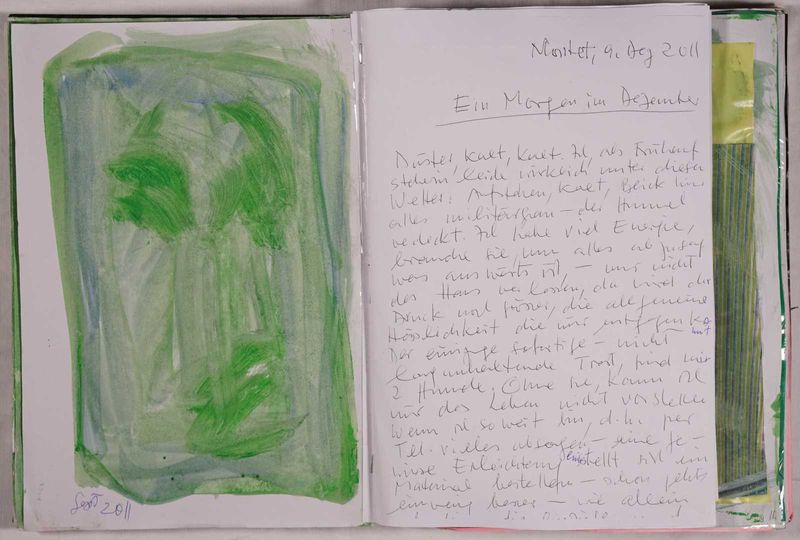 9. Dez 2011
Ein Morgen im Dezember
Düster, kalt, kalt. Ich, als Frühauf
steherin leide wirklich unter diesem
Wetter. Aufstehen, kalt, Blick hin
alles – der Himmel
verdeckt. Ich habe viel Energie,
brauche sie, um alles
was auswärts ist, – nur nicht
das Haus verlassen, da wird der
Druck noch grösser, die allgemeine
Hässlichkeit die mir entgegen ko
mmt
Der einzige sofortige – nicht
lang anhaltende Trost, sind mir
2 Hunde. Ohne sie, kann ich
mir das Leben nicht vorstellen
Wenn ich so weit bin, d.h. per
Tel. vieles absagen – eine ge-
wisse Erleichterung stellt sich ein
Material bestellen – schon geht's
ein wenig besser – wie allein
2011